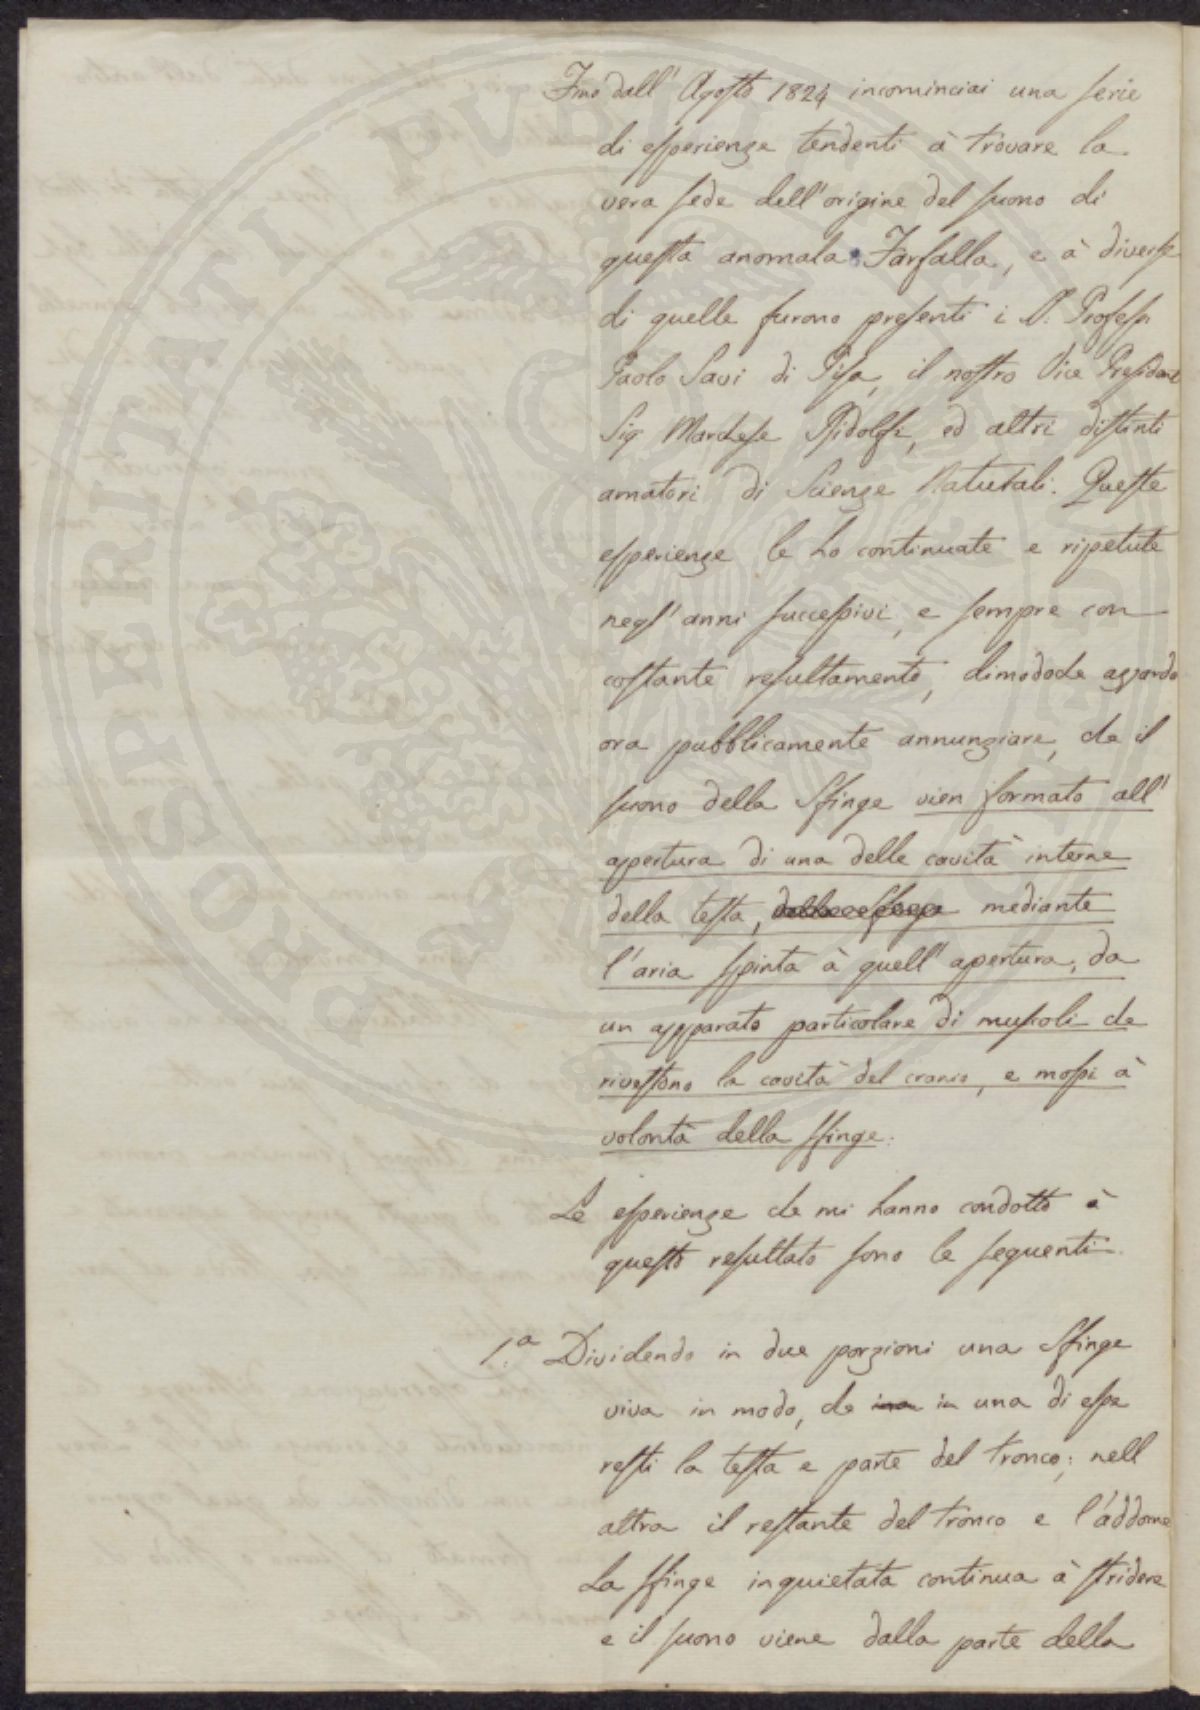 Fino dall' Agosto 1824 incominciai una serie
di esperienze tendenti à trovare la
vera sede dell'origine del suono di
questa anomala Farfalla, e à diverse
di quelle furono presenti i S. Profess
Paolo Savi di Pisa, il nostro Vice President
Sig Marchese Ridolfi, ed altri distinti
amatori di Scienze Naturali. Queste
esperienze le ho continuate e ripetute
negl'anni successivi, e sempre con
costante resultamento, dimodoche azzardo
ora pubblicamente annunziare, che il
suono della Sfinge vien formato all'
apertura di una delle cavità interne
della testa, della sfinge mediante
l'aria spinta à quell'apertura, da
un apparato particolare di muscoli che
rivestono la cavità del cranio, e mossi à
volontà della sfinge.
Le esperienze che mi hanno condotto à
questo resultato sono le seguenti
1.a Dividendo in due porzioni una Sfinge
viva in modo, che in una di esse
resti la testa e parte del tronco; nell
altra il restante del tronco e l'addome
La sfinge inquietata continua à stridere
e il suono viene dalla parte della
PROSPERITATI PVBLICAE